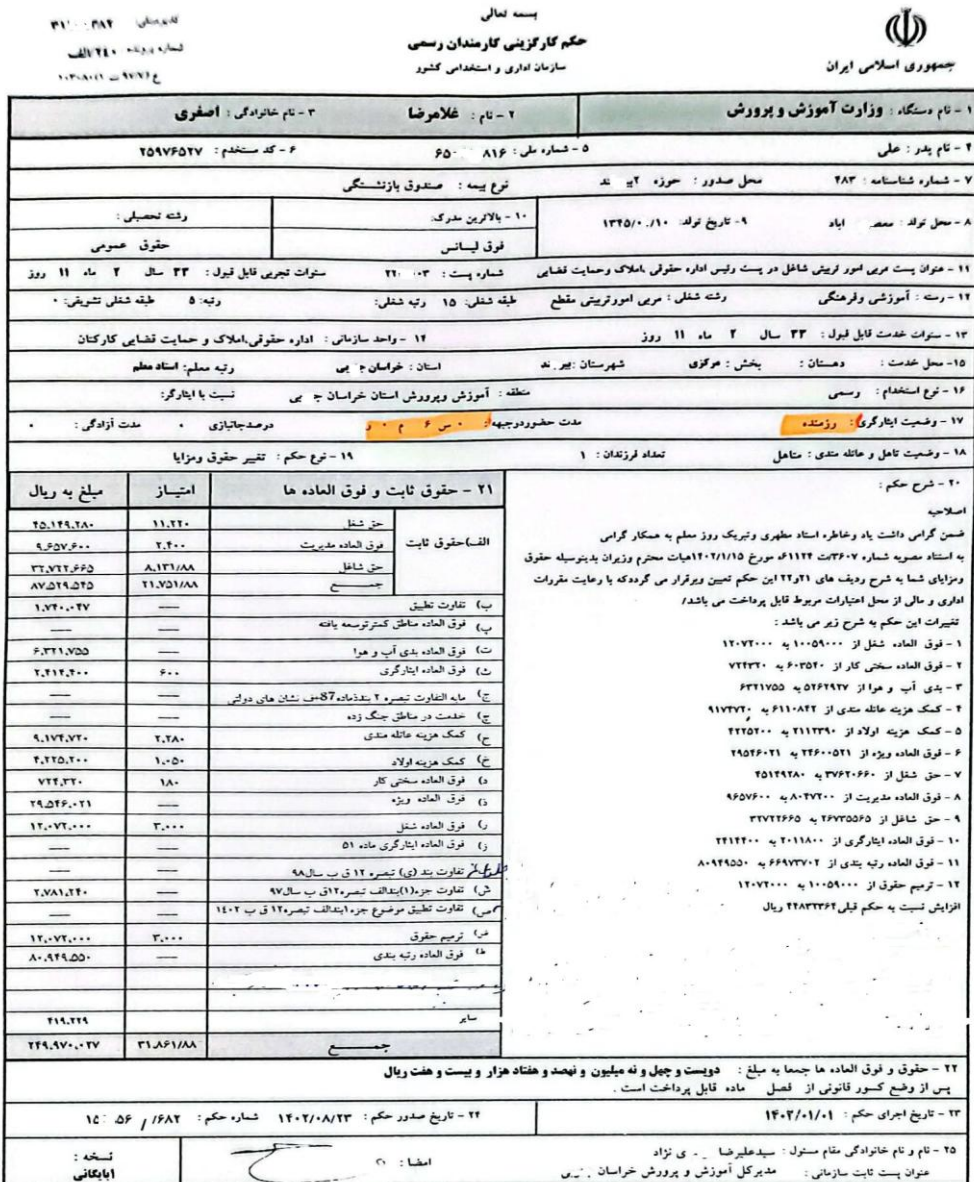 بسمه تعالی
حکم کارگزینی کارمندان رسمی
سازمان اداری و استخدامی کشور
جمهوری اسلامی ایران
۱ - نام دستگاه : وزارت آموزش و پرورش ۲ - نام : غلامرضا ۳ - نام خانوادگی : اصغری
۴ - نام پدر : علی ۵ - شماره ملی : ۶۵ ۸۱۶ ۶ - کد مستخدم : ۲۵۹۷۶۵۲۷
۷ - شماره شناسنامه : ۴۸۳ محل صدور : حوزه ۲ ند نوع بیمه : صندوق بازنشستگی
۸ - محل تولد : اباد ۹- تاریخ تولد: ۱۳۴۵/۰ /۱۰ ۱۰ - بالاترین مدرک: رشته تحصیلی :
فوق لیسانس حقوق عمومی
۱۱ - عنوان پست مربی امور تربیتی شاغل در پست رئیس اداره حقوقی ،املاک وحمایت قضایی شماره پست : ۲۲ ۰۳ سنوات تجربی قابل قبول : ۳۳ سال ۲ ماه ۱۱ روز
۱۲ - رسته : آموزشی وفرهنگی رشته شغلی : مربی امورتربیتی مقطع طبقه شغلی: ۱۵ رتبه شغلی: رتبه: ۵ طبقه شغلی تشریفی: ۰
۱۳ - سنوات خدمت قابل قبول : ۳۳ سال ۲ ماه ۱۱ روز ۱۴ - واحد سازمانی : اداره حقوقی،املاک و حمایت قضایی کارکنان
۱۵- محل خدمت : دهستان : بخش : مرکزی شهرستان :بیر ند استان : خراسان ج بی رتبه معلم: استاد معلم
۱۶ - نوع استخدام : رسمی منطقه : آموزش وپرورش استان خراسان ج بی نسبت با ایثارگر:
۱۷ - وضعیت ایثارگری: رزمنده مدت حضوردرجبهه: ۰ س ۶ م ۰ ر درصدجانبازی ۰ مدت آزادگی : ۰
۱۸ - وضعیت تاهل و عائله مندی : متاهل تعداد فرزندان : ۱ ۱۹ - نوع حکم : تغییر حقوق ومزایا
۲۰ - شرح حکم :
اصلاحیه
ضمن گرامی داشت یاد وخاطره استاد مطهری وتبریک روز معلم به همکار گرامی
به استناد مصوبه شماره ۳۶۰۷/ت ۶۱۱۲۴ه مورخ ۱۴۰۲/۱/۱۵هیات محترم وزیران بدینوسیله حقوق
ومزایای شما به شرح ردیف های ۲۱و۲۲ این حکم تعیین وبرقرار می گرددکه با رعایت مقررات
اداری و مالی از محل اعتبارات مربوط قابل پرداخت می باشد/
تغییرات این حکم به شرح زیر می باشد :
۱ - فوق العاده شغل از ۱۰۰۵۹۰۰۰ به ۱۲۰۷۲۰۰۰
۲ - فوق العاده سختی کار از ۶۰۳۵۴۰ به ۷۲۴۳۲۰
۳ - بدی آب و هوا از ۵۲۶۲۹۲۷ به ۶۳۲۱۷۵۵
۴ - کمک هزینه عائله مندی از ۶۱۱۰۸۴۲ به ۹۱۷۴۷۲۰
۵ - کمک هزینه اولاد از ۲۱۱۲۳۹۰ به ۴۲۲۵۲۰۰
۶ - فوق العاده ویژه از ۲۴۶۰۰۵۲۱ به ۲۹۵۴۶۰۲۱
۷ - حق شغل از ۳۷۶۲۰۶۶۰ به ۴۵۱۴۹۲۸۰
۸ - فوق العاده مدیریت از ۸۰۴۷۲۰۰ به ۹۶۵۷۶۰۰
۹ - حق شاغل از ۲۶۷۳۵۵۶۵ به ۳۲۷۲۲۶۶۵
۱۰ - فوق العاده ایثارگری از ۲۰۱۱۸۰۰ به ۲۴۱۴۴۰۰
۱۱ - فوق العاده رتبه بندی از ۶۶۹۷۳۷۰۲ به ۸۰۹۴۹۵۵۰
۱۲ - ترمیم حقوق از ۱۰۰۵۹۰۰۰ به ۱۲۰۷۲۰۰۰
افزایش نسبت به حکم قبلی۴۴۸۳۲۳۶۴ ریال
۲۱ - حقوق ثابت و فوق العاده ها امتیـاز مبلغ به ریال
الف)حقوق ثابت
حق شغل ۱۱.۲۲۰ ۴۵.۱۴۹.۲۸۰
فوق العاده مدیریت ۲.۴۰۰ ۹.۶۵۷.۶۰۰
حق شاغل ۸.۱۳۱/۸۸ ۳۲.۷۲۲.۶۶۵
جمـــع ۲۱.۷۵۱/۸۸ ۸۷.۵۲۹.۵۴۵
ب) تفاوت تطبیق ---- ۱.۷۴۰.۰۴۷
پ) فوق العاده مناطق کمترتوسعه یافته ---- ----
ت) فوق العاده بدی آب و هوا ---- ۶.۳۲۱.۷۵۵
ث) فوق العاده ایثارگری ۶۰۰ ۲.۴۱۴.۴۰۰
ج) مابه التفاوت تبصره ۲ بندذماده87ف نشان های دولتی ---- ----
چ) خدمت در مناطق جنگ زده ---- ----
ح) کمک هزینه عائله مندی ۲.۲۸۰ ۹.۱۷۴.۷۲۰
خ) کمک هزینه اولاد ۱.۰۵۰ ۴.۲۲۵.۲۰۰
د) فوق العاده سختی کار ۱۸۰ ۷۲۴.۳۲۰
ذ) فوق العاده ویژه ---- ۲۹.۵۴۶.۰۲۱
ر) فوق العاده شغل ۳.۰۰۰ ۱۲.۰۷۲.۰۰۰
ز) فوق العاده ایثارگری ماده ۵۱ ---- ----
تفاوت بند (ی) تبصره ۱۲ ق ب سال۹۸ ---- ----
ش) تفاوت جزء(۱)بندالف تبصره۱۲ق ب سال۹۷ ---- ۲.۷۸۱.۲۴۰
ص) تفاوت تطبیق موضوع جزء۱بندالف تبصره۱۲ ق ب ۱٤۰۲ ---- ----
ض) ترمیم حقوق ۳.۰۰۰ ۱۲.۰۷۲.۰۰۰
ط) فوق العاده رتبه بندی ---- ۸۰.۹۴۹.۵۵۰
سایر ۴۱۹.۲۲۹
جمـــع ۳۱.۸۶۱/۸۸ ۲۴۹.۹۷۰.۰۲۷
۲۲ - حقوق و فوق العاده ها جمعا به مبلغ : دویست و چهل و نه میلیون و نهصد و هفتاد هزار و بیست و هفت ریال
پس از وضع کسور قانونی از فصل ماده قابل پرداخت است .
۲۳ - تاریخ اجرای حکم : ۱۴۰۲/۰۱/۰۱ ۲۴ - تاریخ صدور حکم : ۱۴۰۲/۰۸/۲۳ شماره حکم :
۲۵ - نام و نام خانوادگی مقام مسئول : سیدعلیرضا ی نژاد امضا : نسخه :
عنوان پست ثابت سازمانی : مدیرکل آموزش و پرورش خراسان ابایگانی